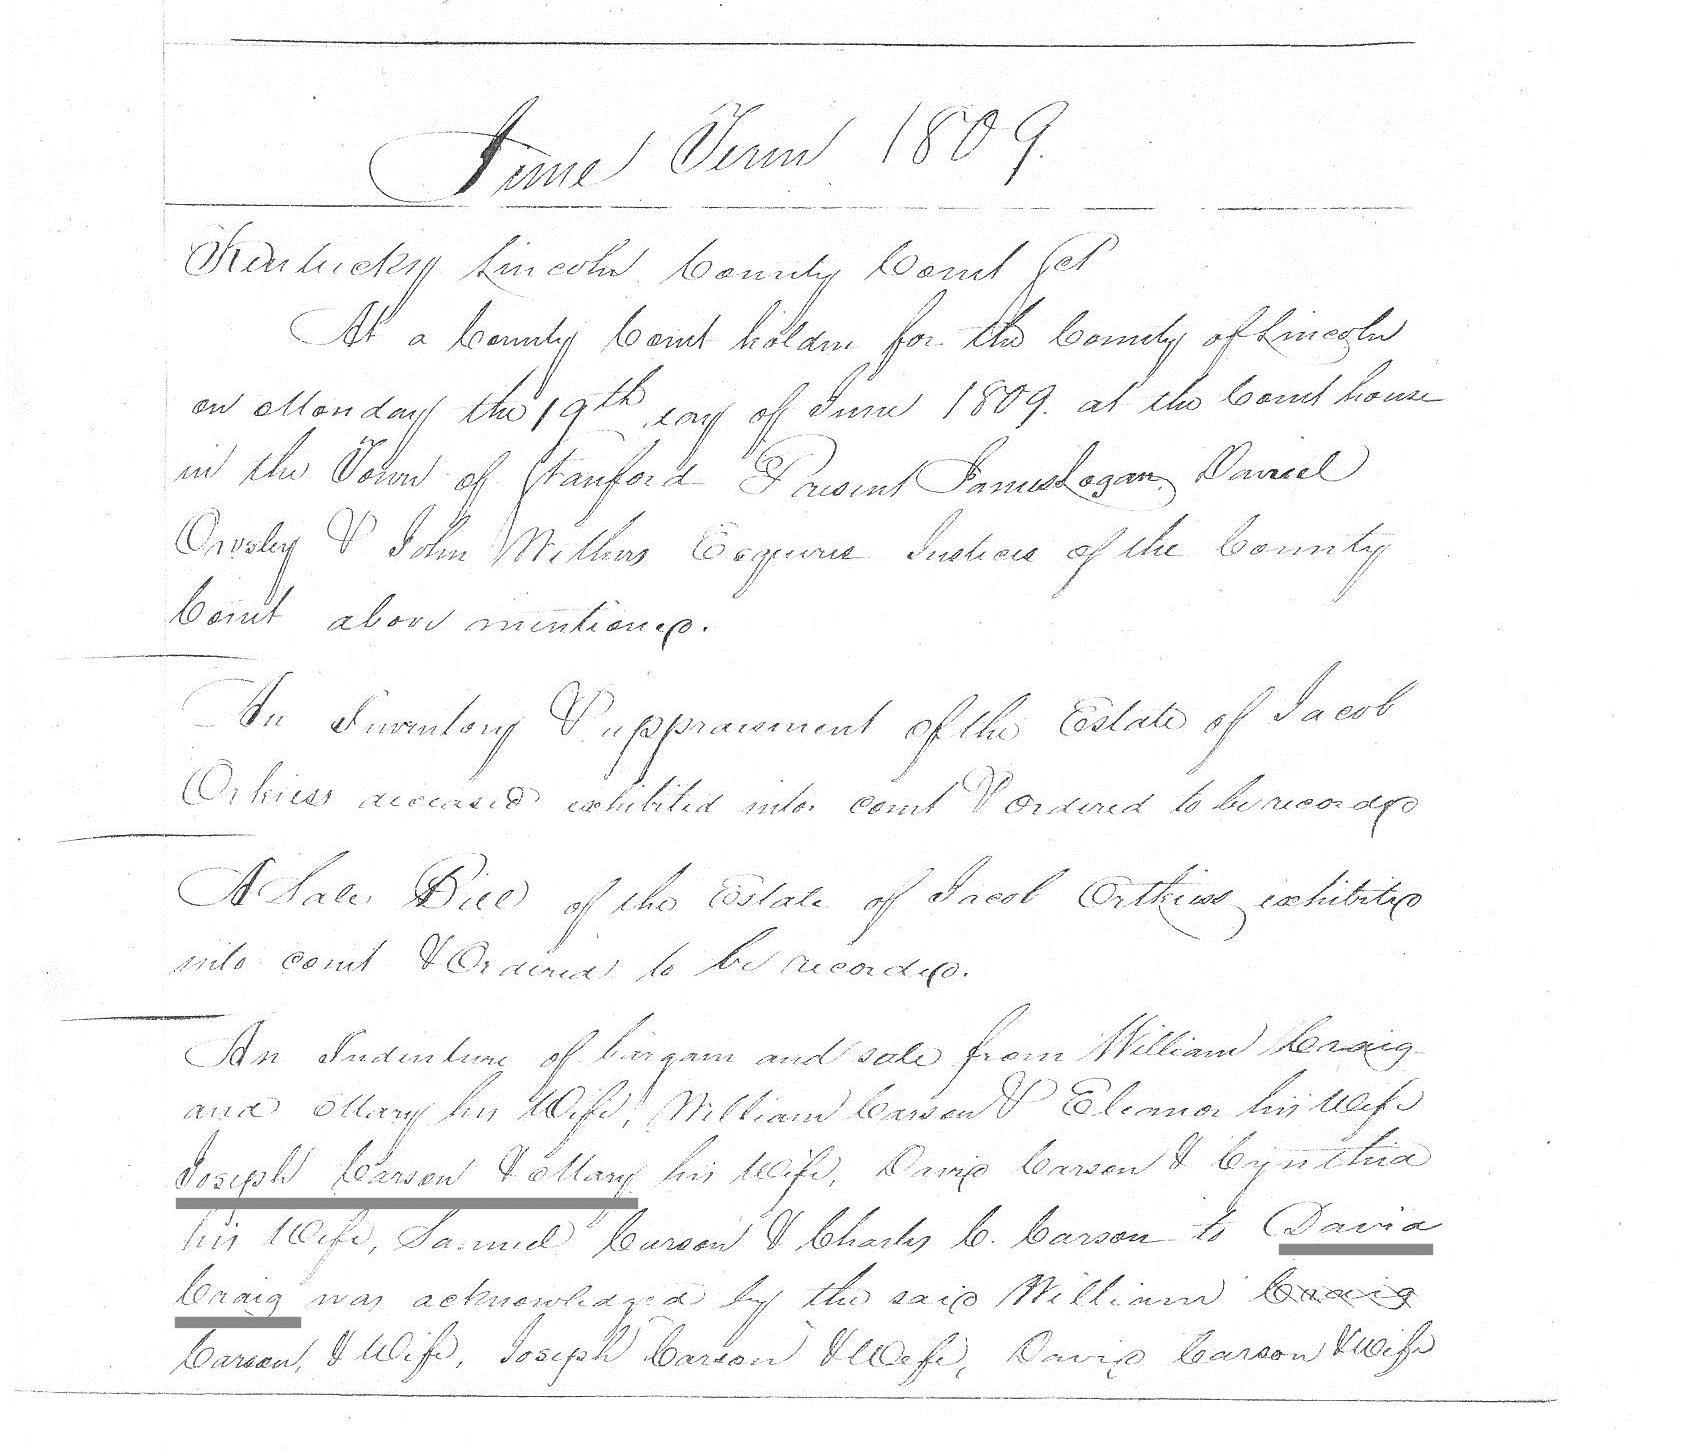 June Term 1809.
Kentucky Lincoln County Court Sct
At a County Court holden for the County of Lincoln
on Monday the 19th day of June 1809. at the Court house
in the Town of Stanford Present James Logan, Daniel
Owsley & John Withers Esquires Justices of the County
Court above mentioned.
An Inventory & appraisment of the Estate of Jacob
Orkiess deceased exhibited into court & ordered to be recorded
A Sale Bill of the Estate of Jacob Ortkiess exhibited
into court & Ordered to be recorded.
An Indenture of bargain and sale from William Craig
and Mary his Wife, William Carson & Eleanor his Wife
Joseph Carson & Mary his Wife, David Carson & Cynthia
his Wife, Samuel Carson & Charles C. Carson to David
Craig was acknowledged by the said William Craig
Carson, & Wife, Joseph Carson & Wife, David Carson & Wife